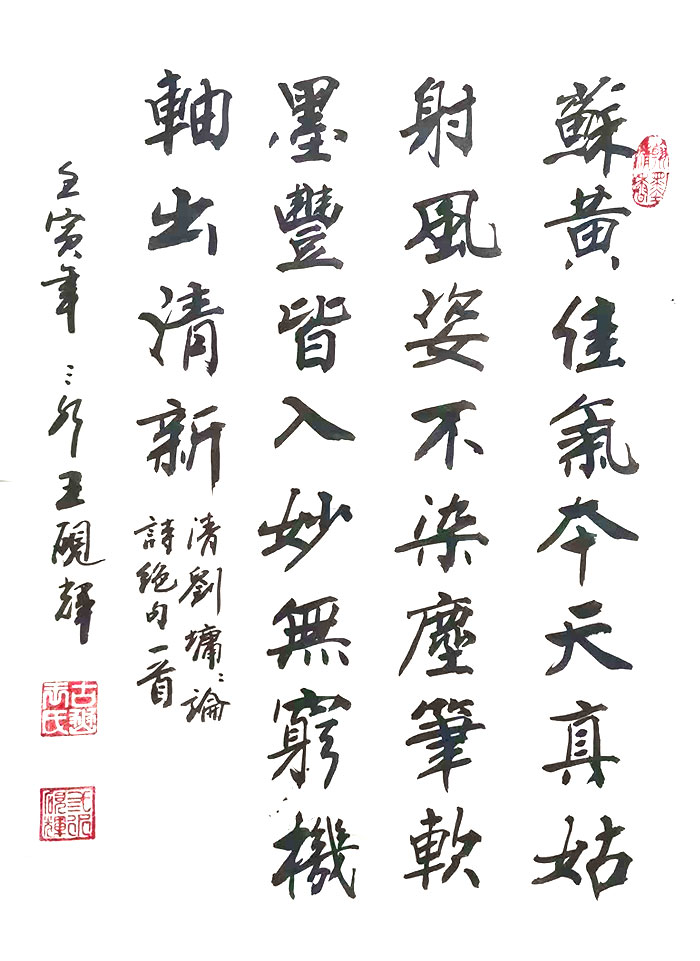 蘇黃佳氣本天真姑
射風姿不染塵筆軟
墨豐皆入妙無窮機
軸出清新
清劉墉〻論
詩絕句一首
壬寅年 王硯輝